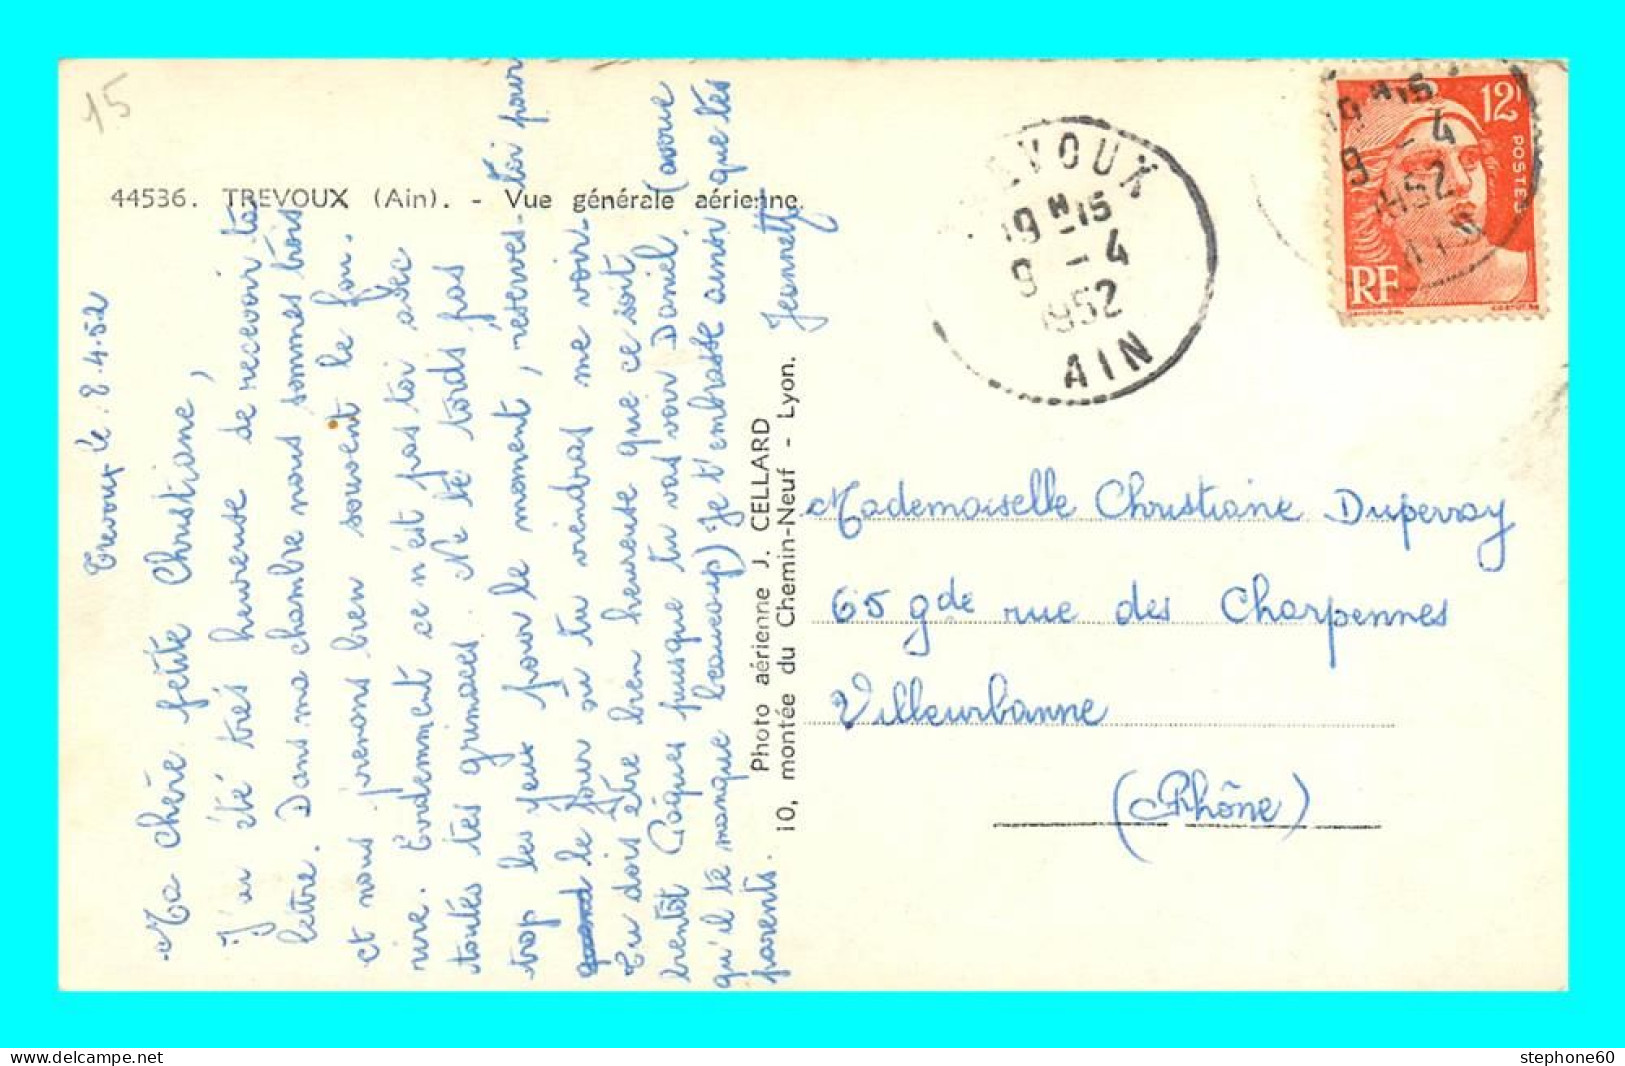 15
44536. TREVOUX (Ain). - Vue générale aérienne.
Trevoux le 8.4.52
Ma chère petite Christiane,
J'ai été très heureuse de recevoir ta
lettre. Dans ma chambre nous sommes trois
et nous prenons bien souvent le fou.
rire. Evidemment ce n'est pas toi avec
toutes tes grimaces. Ne te tords pas
trop les yeux pour le moment, reserves-toi pour
le jour où tu viendras me voir.
Tu dois être bien heureuse que ce soit
bientôt Pâques puisque tu vas voir Daniel (avoue
qu'il te manque beaucoup) Je t'embrasse ainsi que tes
parents.
Jeannette
Photo aérienne J. CELLARD
10, montée du Chemin-Neuf - Lyon.
TREVOUX
19 H 15
9 - 4
1952
AIN
19 H 15
9 - 4
1952
AIN
12F
POSTES
RF
Mademoiselle Christiane Duperray
65 gde rue des Charpennes
Villeurbanne
(Rhône)
stephone60